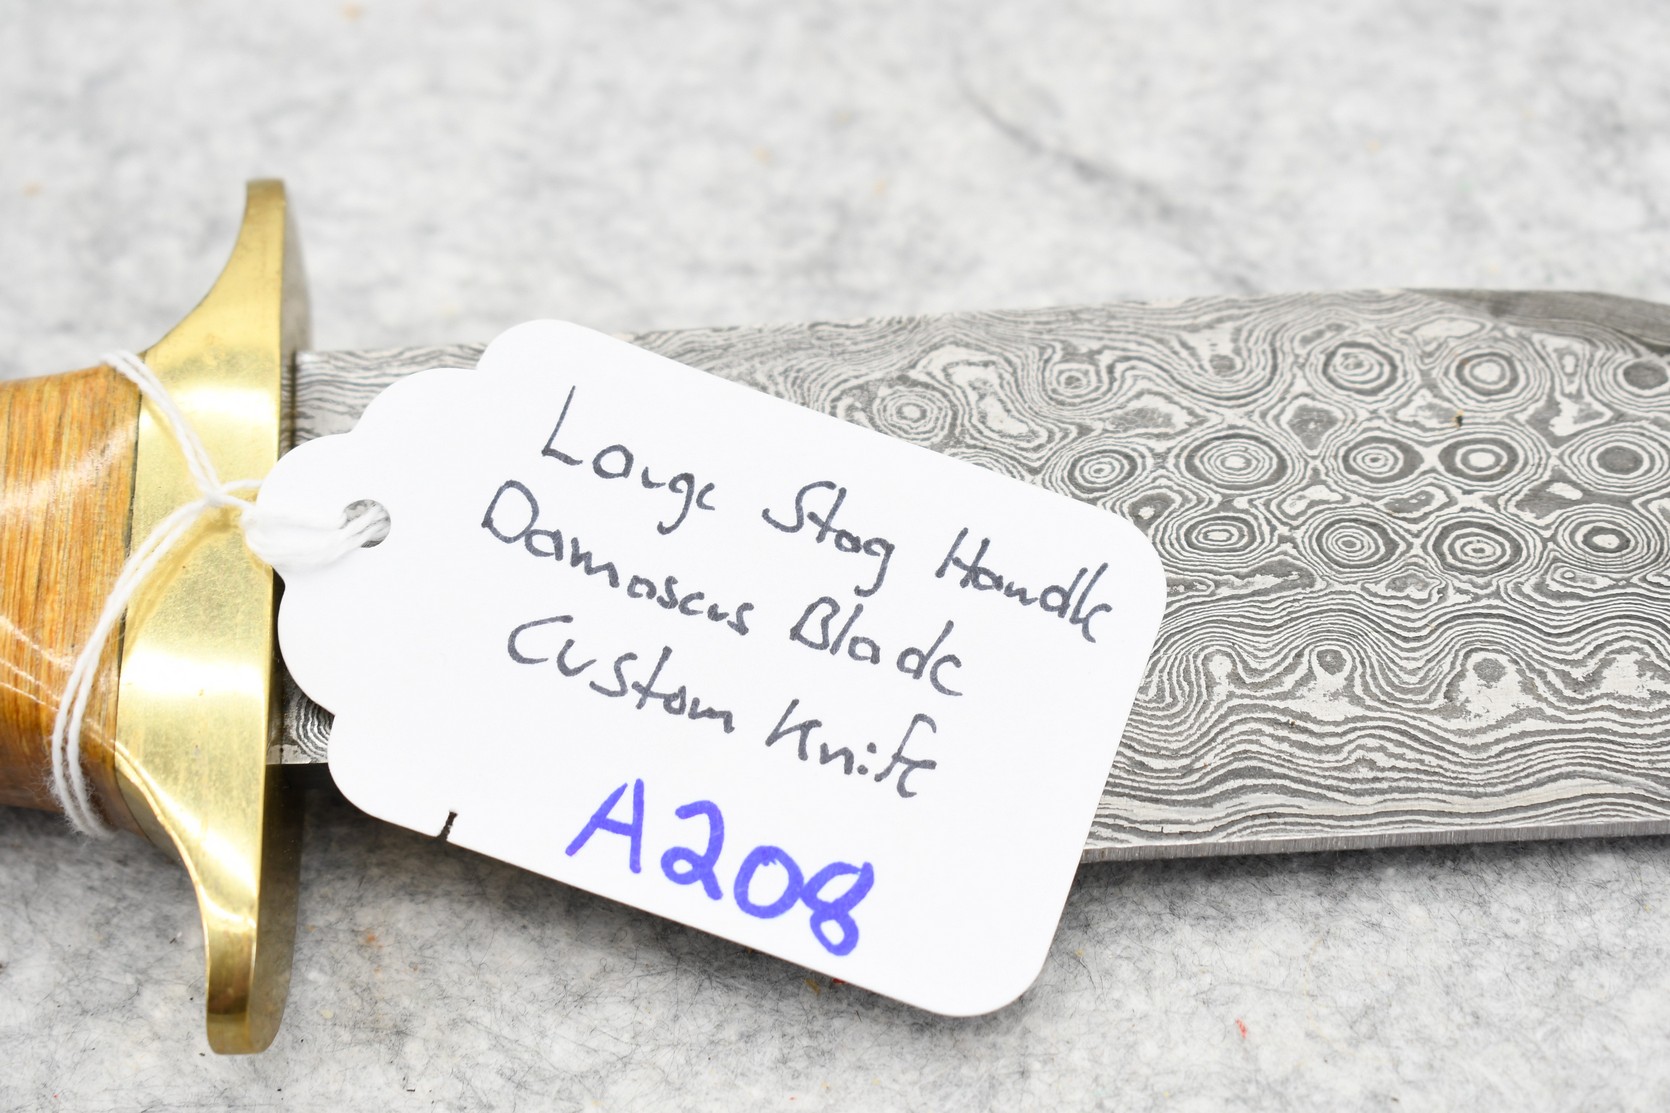 Large Stag Handle
Damascus Blade
Custom Knife
A208